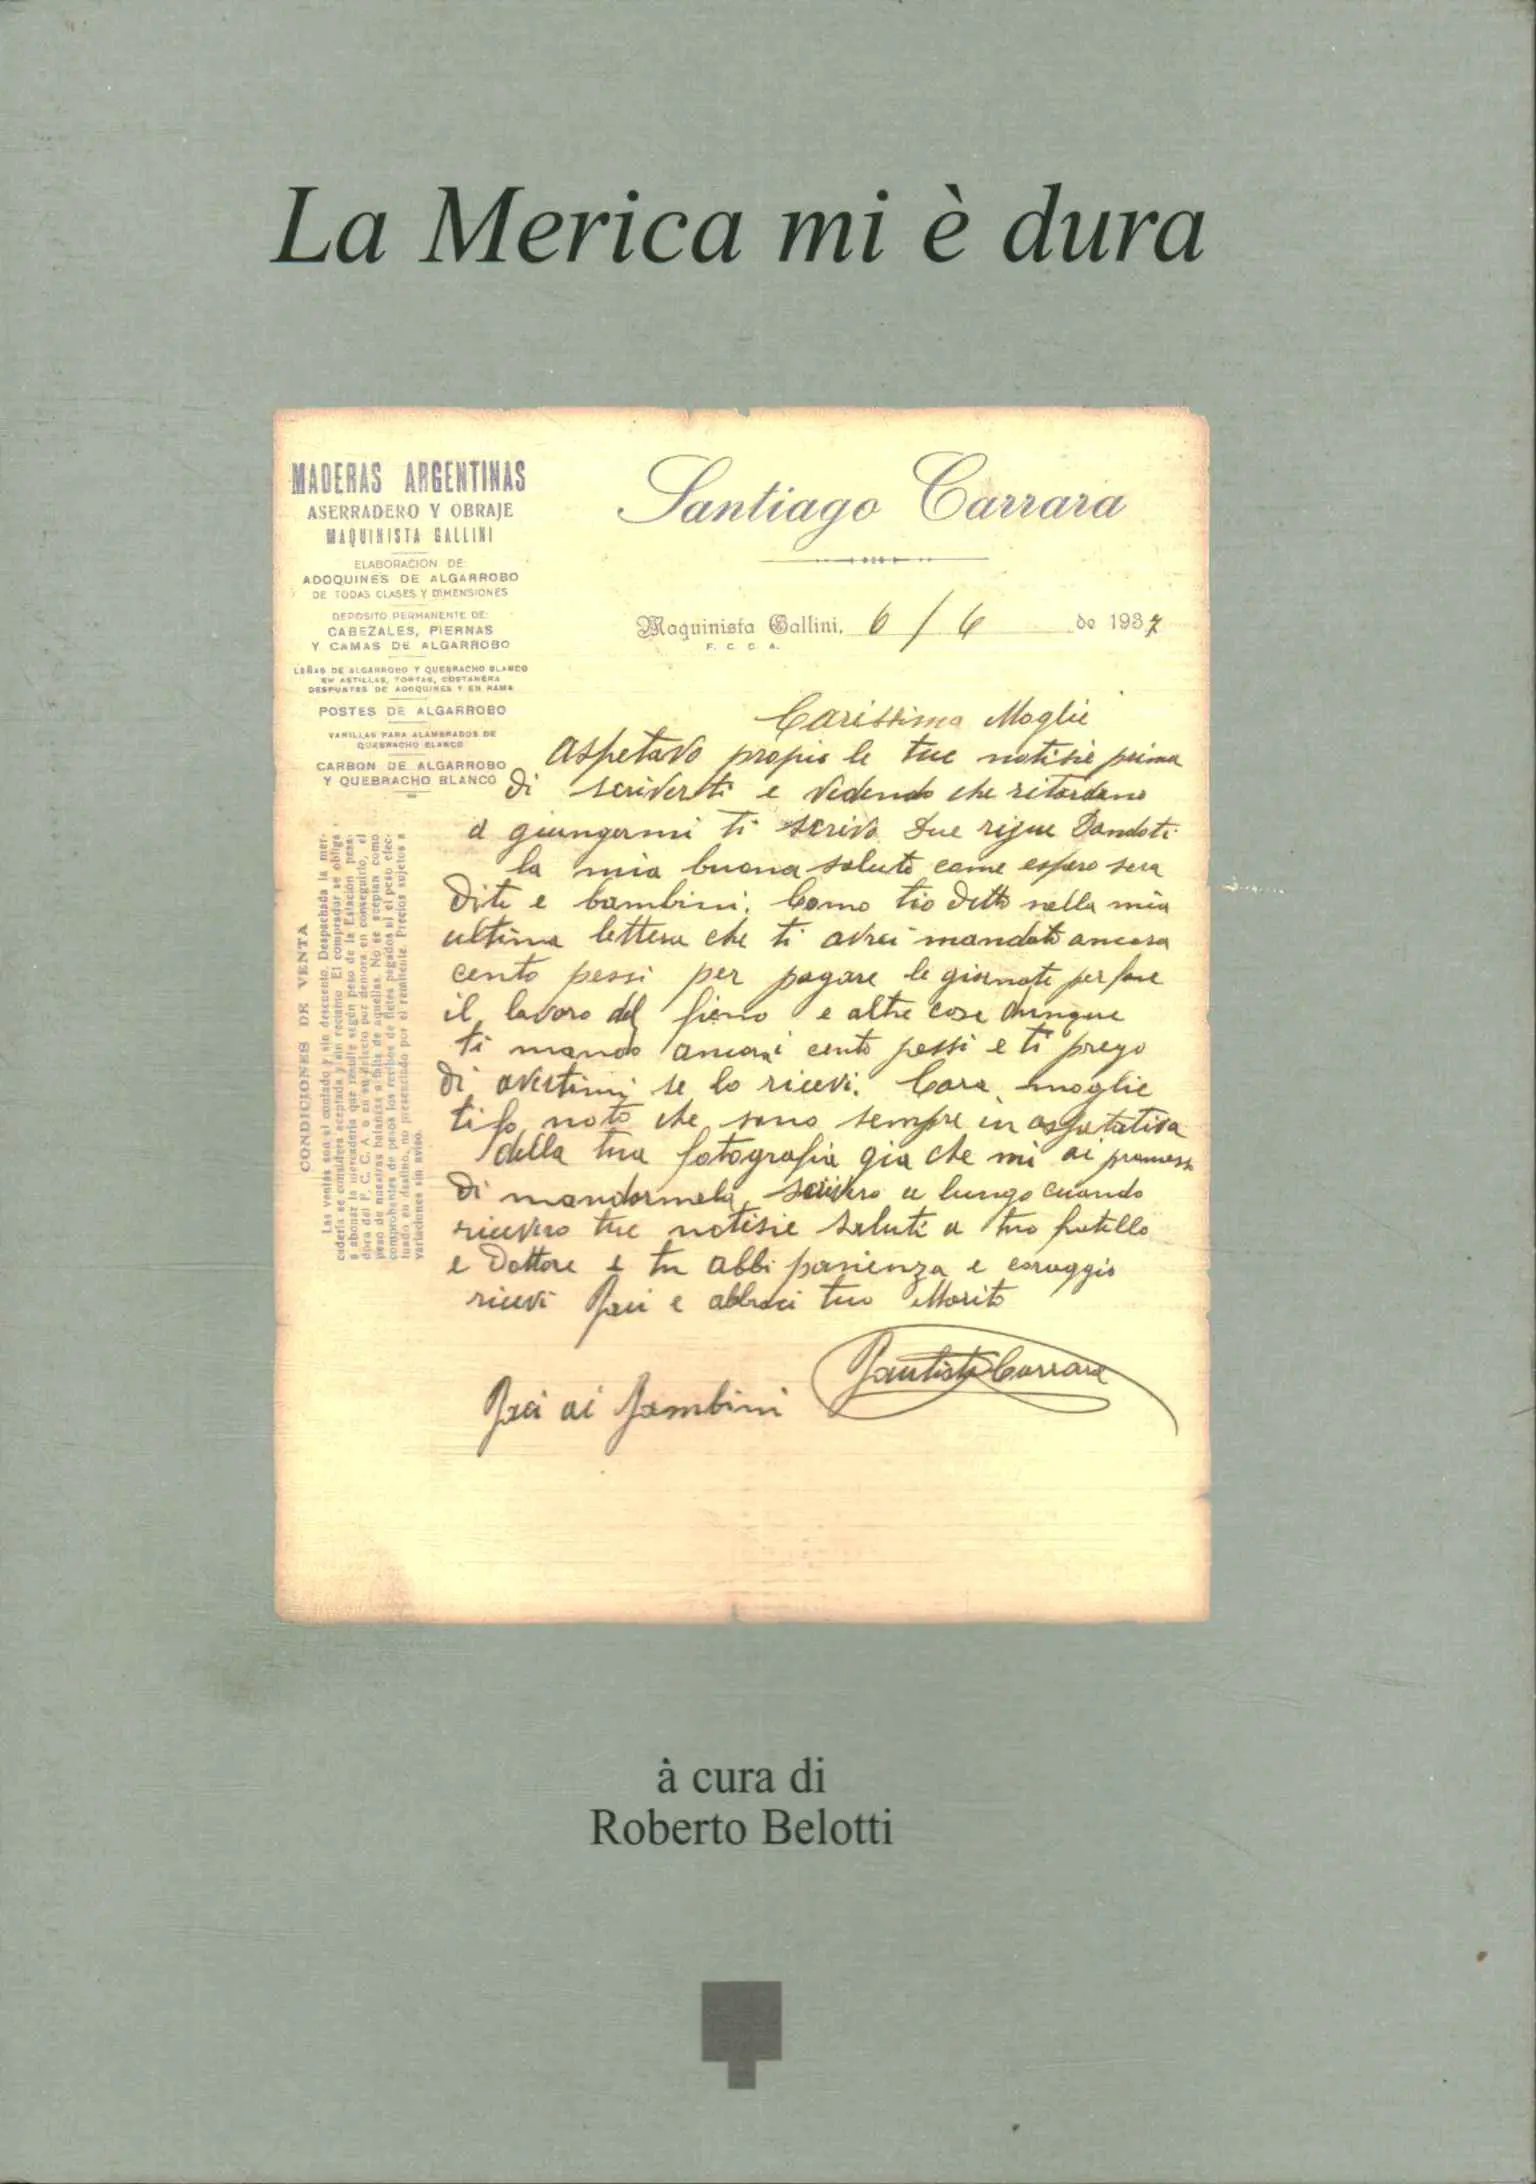 La Merica mi è dura
MADERAS ARGENTINAS
ASERRADERO Y OBRAJE
MAQUINISTA GALLINI
ELABORACION DE:
ADOQUINES DE ALGARROBO
DE TODAS CLASES Y DIMENSIONES
DEPOSITO PERMANENTE DE:
CABEZALES, PIERNAS
Y CAMAS DE ALGARROBO
LEÑAS DE ALGARROBO Y QUEBRACHO BLANCO
EN ASTILLAS, TORTAS, COSTANERA
DESPUNTES DE ADOQUINES Y EN RAMA
POSTES DE ALGARROBO
VARILLAS PARA ALAMBRADOS DE
QUEBRACHO BLANCO
CARBON DE ALGARROBO
Y QUEBRACHO BLANCO
CONDICIONES DE VENTA
Las ventas son al contado y sin descuento. Despachada la mer-
cadería se considera aceptada y sin reclamo. El comprador se obliga
a abonar la mercadería que resulte según peso de la Estación pesa-
dora del F. C. C. A. o en su defecto por demora en conseguirlo, el
peso de nuestras balanzas a falta de aquellas. No se aceptan como
comprobantes de pesos los recibos de fletes pagados ni el peso efec-
tuado en destino, no presenciado por el remitente. Precios sujetos a
variaciones sin aviso.
Santiago Carrara
Maquinista Gallini, 6 / 6 de 1937
F. C. C. A.
Carissima Moglie
Aspetavo propio le tue notisie prima
di scriverti e vedendo che ritardano
a giungermi ti scrivo due righe Dandoti
la mia buona salute come espero sera
Dite e bambini. Como tio detto nella mia
ultima lettera che ti avrei mandato ancora
cento pessi per pagare le giornate per fare
il lavoro del fieno e altre cose dunque
ti mando ancora cento pessi e ti prego
di avertimi se lo ricevi. Cara moglie
ti fo noto che sono sempre in aspetativa
della tua fotografia gia che mi ai promess
di mandarmela, scrivero a lungo cuando
ricevero tue notisie saluti a tuo fratello
e Dottore e tu abbi pasienza e coraggio
ricevi Baci e abbraci tuo Marito
Bautista Carrara
Baci ai Bambini
à cura di
Roberto Belotti